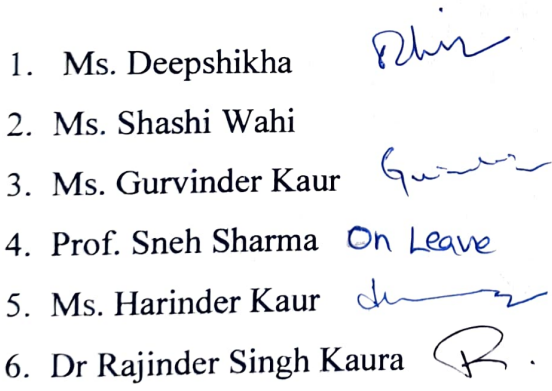 1. Ms. Deepshikha
2. Ms. Shashi Wahi
3. Ms. Gurvinder Kaur
4. Prof. Sneh Sharma On Leave
5. Ms. Harinder Kaur
6. Dr Rajinder Singh Kaura